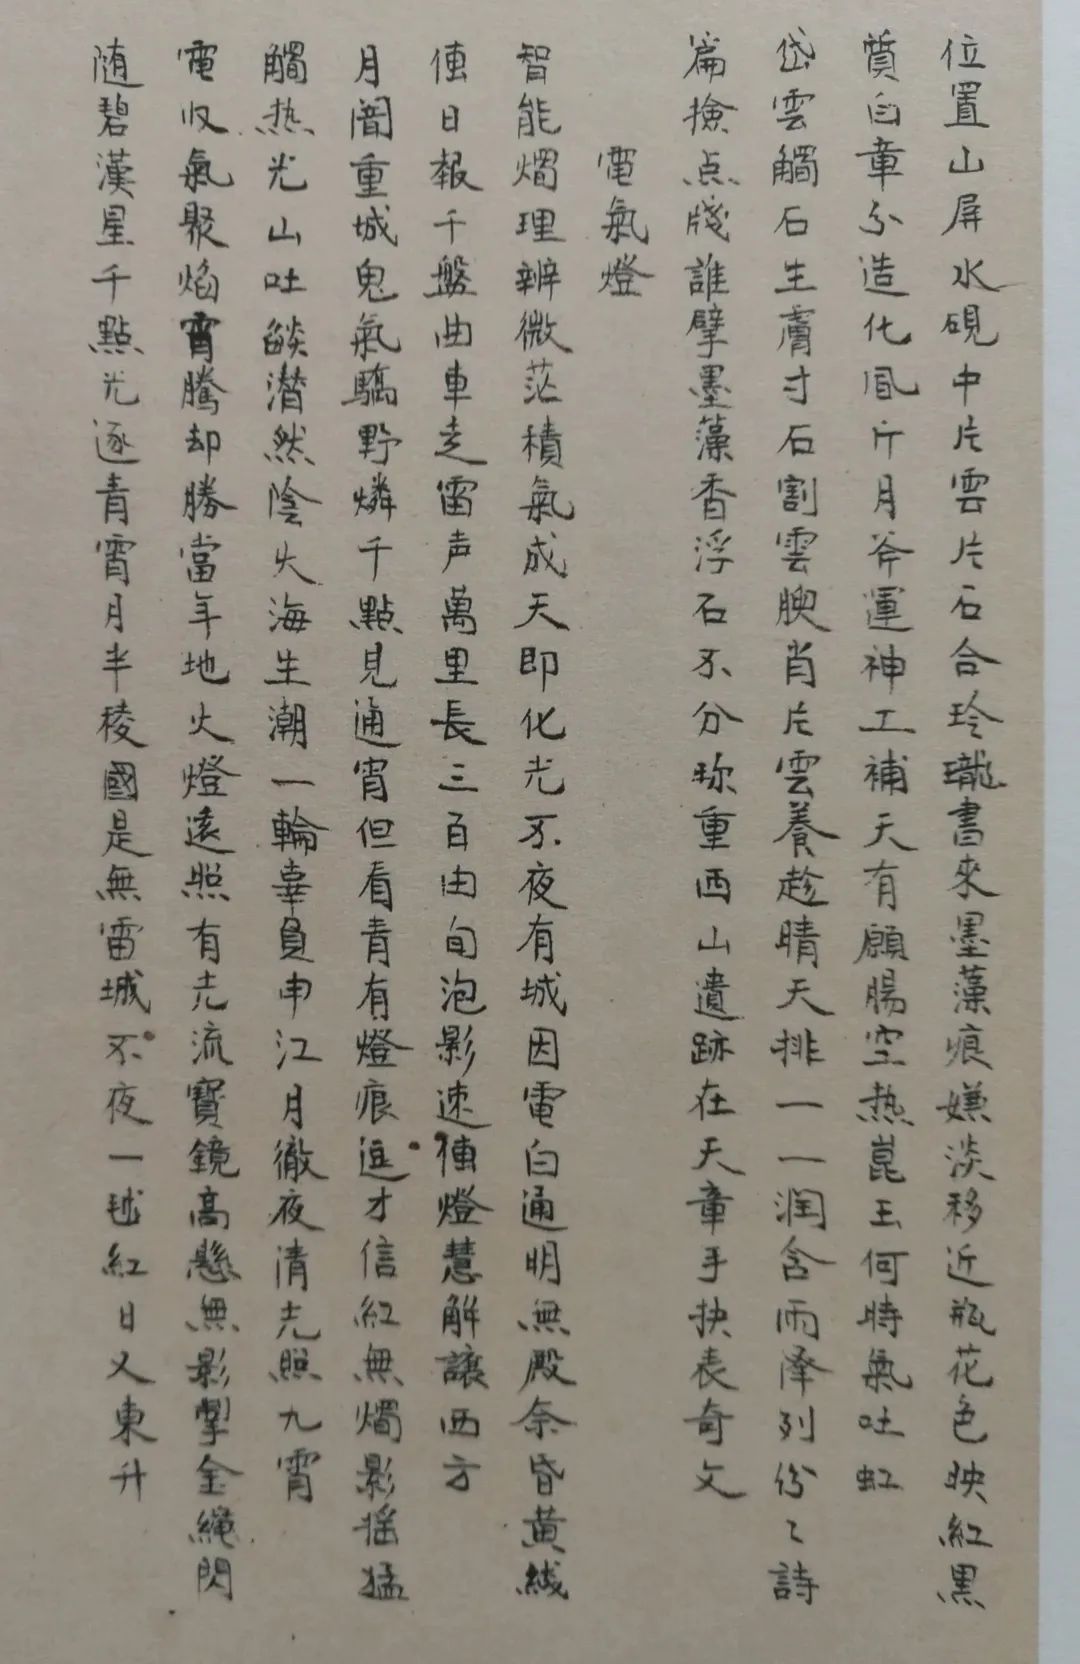 位置山屏水硯中片雲片石合玲瓏書來墨藻痕嫌淡移近瓶花色映紅黑
質白章分造化風斤月斧運神工補天有願腸空熱崑玉何時氣吐虹
岱雲觸石生膚寸石割雲腴肖片雲養趁晴天排一一潤含雨澤列份〻詩
篇撿点牋誰擘墨藻香浮石不分珎重西山遺跡在天章手抉表奇文
電氣燈
智能燭理辨微茫積氣成天即化光不夜有城因電白通明無殿奈昏黃綫
傳日報千盤曲車走雷声萬里長三百由旬泡影速傳燈慧解讓西方
月闇重城鬼氣驕野燐千點見通宵但看青有燈痕逗才信紅無燭影搖猛
觸热光山吐燄潛然陰火海生潮一輪辜負申江月徹夜清光照九霄
電収氣聚焰霄騰却勝當年地火燈遠照有光流寶鏡高懸無影掣金繩閃
随碧漢星千點光逐青霄月半稜國是無雷城不夜一毬紅日又東升